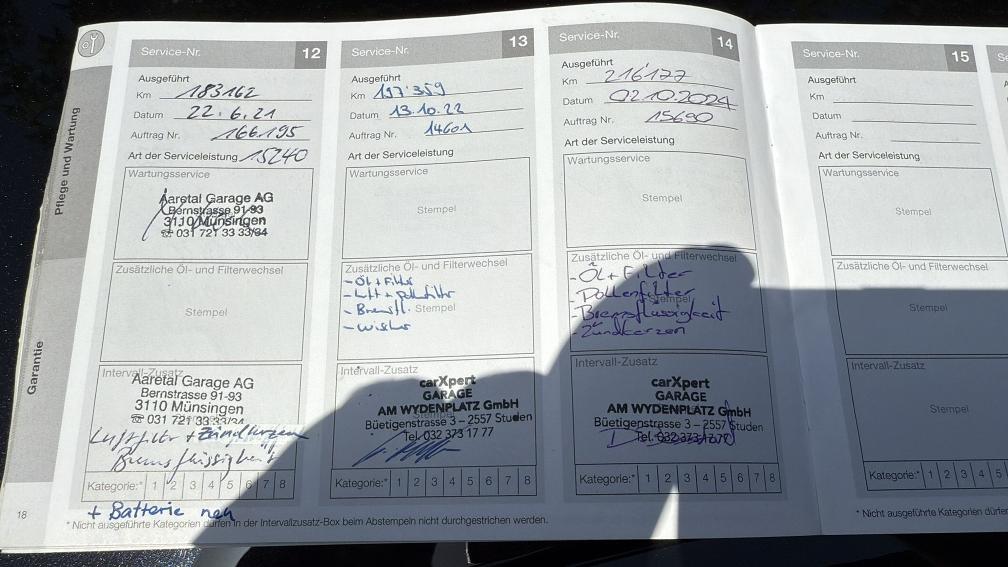 Pflege und Wartung
Garantie
18
Service-Nr. 12
Ausgeführt
Km 183162
Datum 22.6.21
Auftrag Nr. 166.195
Art der Serviceleistung 15240
Wartungsservice
Aaretal Garage AG
Bernstrasse 91-93
3110 Münsingen
☎ 031 721 33 33/34
Zusätzliche Öl- und Filterwechsel
Stempel
Intervall-Zusatz
Aaretal Garage AG
Bernstrasse 91-93
3110 Münsingen
☎ 031 721 33 33/34
Luftfilter + Zündkerzen
Bremsflüssigkeit
Kategorie:* 1 2 3 4 5 6 7 8
+ Batterie neu
* Nicht ausgeführte Kategorien dürfen in der Intervallzusatz-Box beim Abstempeln nicht durchgestrichen werden.
Service-Nr. 13
Ausgeführt
Km 197'359
Datum 13.10.22
Auftrag Nr. 14601
Art der Serviceleistung
Wartungsservice
Stempel
Zusätzliche Öl- und Filterwechsel
- Öl + Filter
- Luft + Pollfilter
- Bremsfl. Stempel
- Wischer
Intervall-Zusatz
carXpert
GARAGE
AM WYDENPLATZ GmbH
Büetigenstrasse 3 – 2557 Studen
Tel. 032 373 17 77
Kategorie:* 1 2 3 4 5 6 7 8
Service-Nr. 14
Ausgeführt
Km 216'177
Datum 02.10.2024
Auftrag Nr. 15690
Art der Serviceleistung
Wartungsservice
Stempel
Zusätzliche Öl- und Filterwechsel
- Öl + Filter
- Pollenfilter
Stempel
- Bremsflüssigkeit
- Zündkerzen
Intervall-Zusatz
carXpert
GARAGE
AM WYDENPLATZ GmbH
Büetigenstrasse 3 – 2557 Studen
Tel. 032 373 17 77
Kategorie:* 1 2 3 4 5 6 7 8
Service-Nr. 15
Ausgeführt
Km
Datum
Auftrag Nr.
Art der Serviceleistung
Wartungsservice
Stempel
Zusätzliche Öl- und Filterwechsel
Stempel
Intervall-Zusatz
Stempel
Kategorie:* 1 2 3 4 5
* Nicht ausgeführte Kategorien dürfen